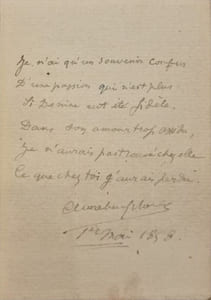 Je n'ai qu'un souvenir confus
D'une passion qui n'est plus
Si Denise eut été fidèle
Dans son amour trop
Je n'aurais pas trouvé chez elle
Ce que chez toi j'aurais perdu.
1er Mai 1858